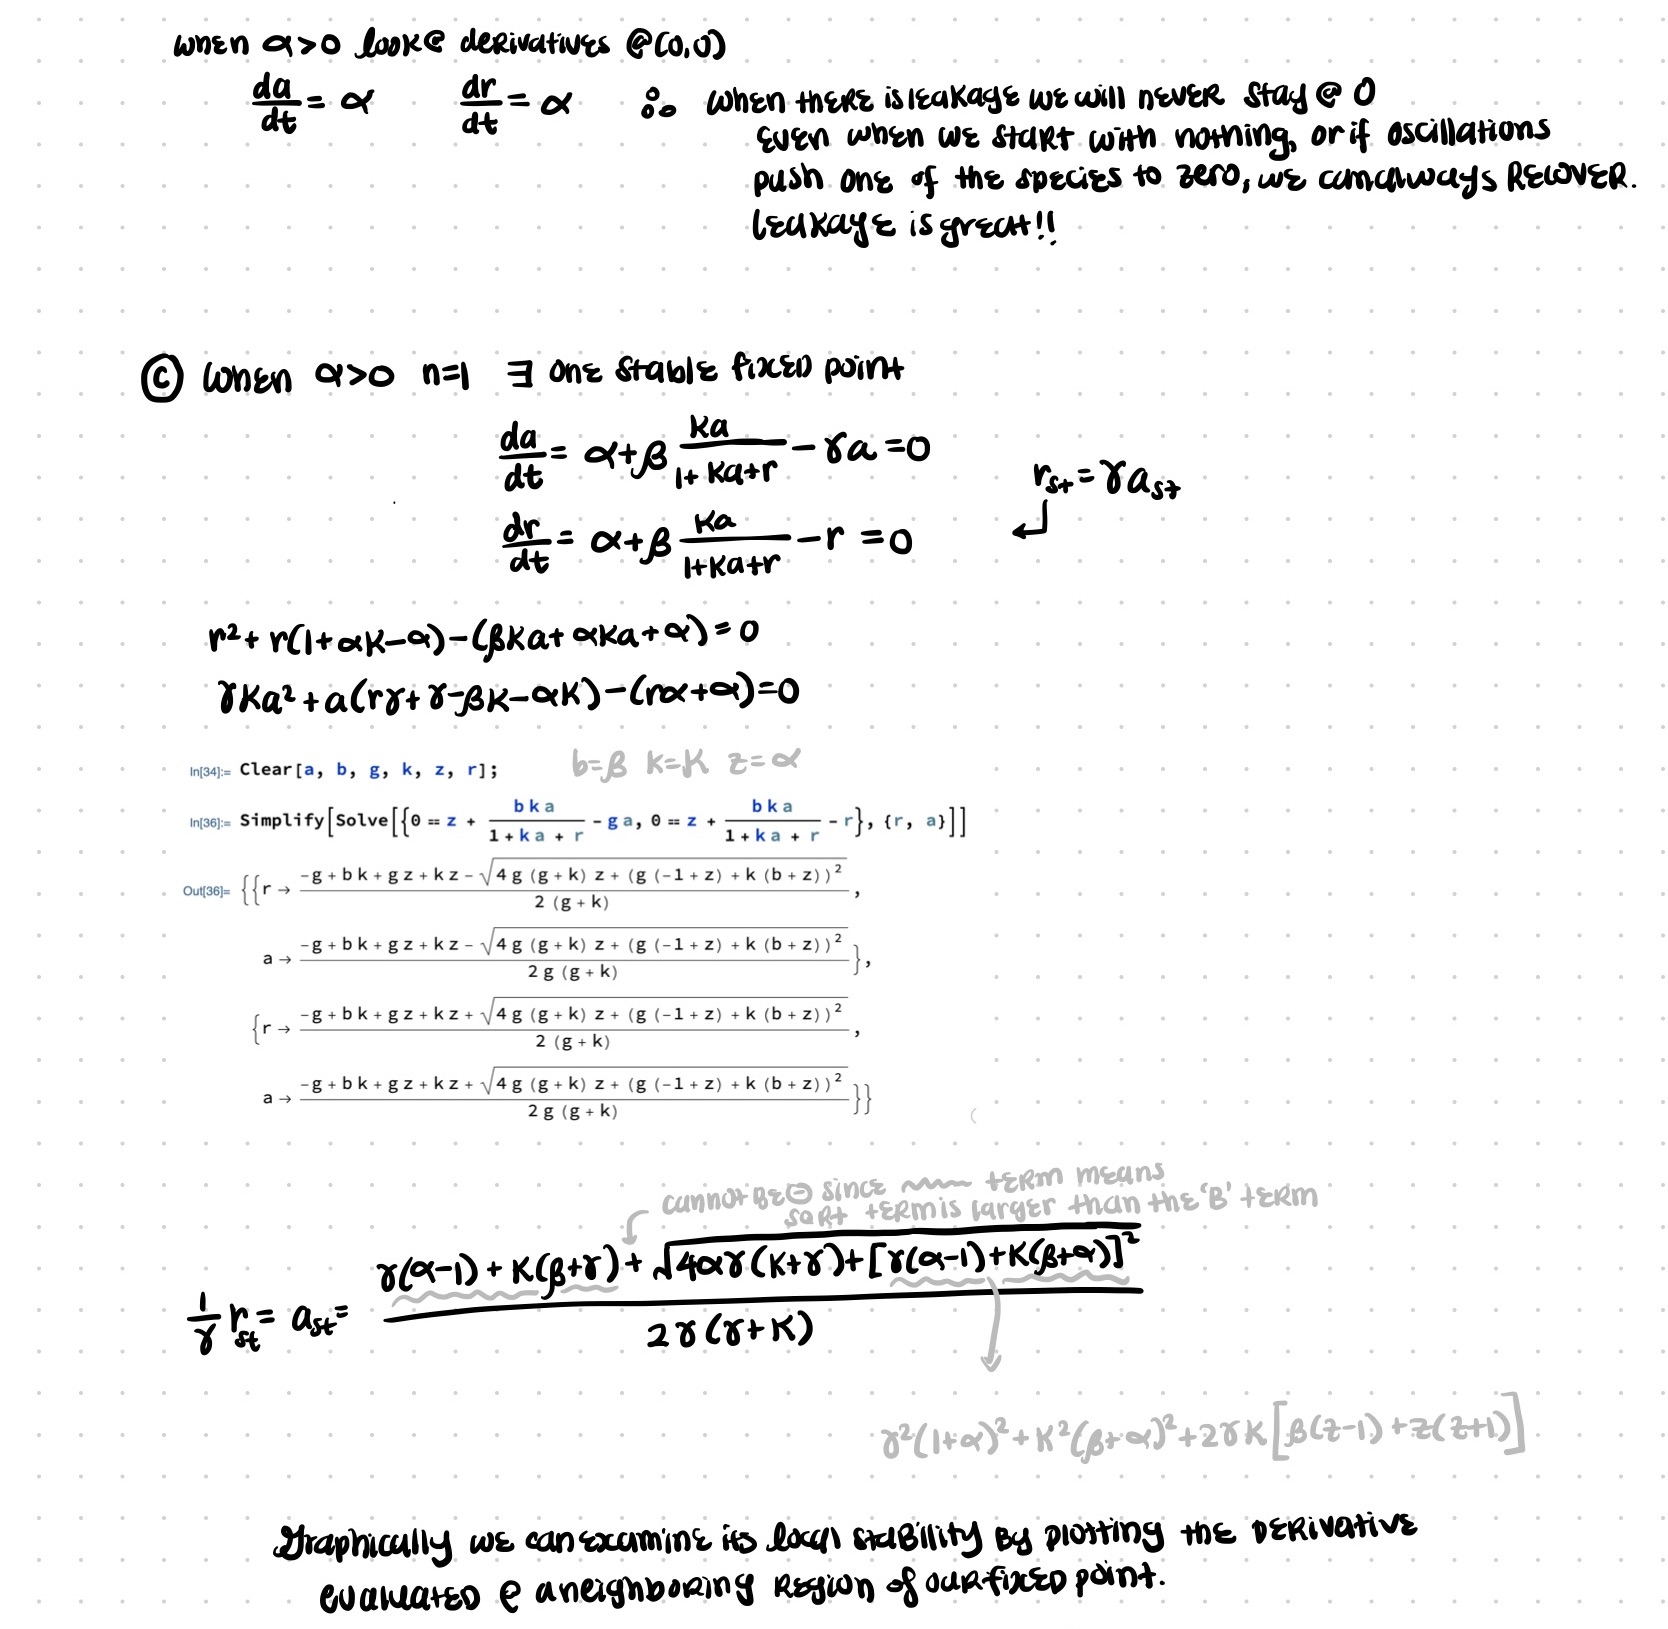 when α>0 look@ derivatives @(0,0)
da/dt = α dr/dt = α ∴ when there is leakage we will never stay @ 0
even when we start with nothing, or if oscillations
push one of the species to zero, we can always recover.
leakage is great!!
ⓒ when α>0 n=1 ∃ one stable fixed point
da/dt = α+β Ka/(1+Ka+r) − γa = 0
r_st = γa_st
dr/dt = α+β Ka/(1+Ka+r) − r = 0
r² + r(1+αK−α)−(βKa+αKa+α)=0
γKa² + a(rγ+γ−βK−αK)−(rα+α)=0
In[34]:= Clear[a, b, g, k, z, r]; b=β k=K z=α
In[36]:= Simplify[Solve[{0 == z + (b k a)/(1 + k a + r) - g a, 0 == z + (b k a)/(1 + k a + r) - r}, {r, a}]]
Out[36]= {{r → (-g + b k + g z + k z - √(4 g (g + k) z + (g (-1 + z) + k (b + z))²))/(2 (g + k)),
a → (-g + b k + g z + k z - √(4 g (g + k) z + (g (-1 + z) + k (b + z))²))/(2 g (g + k))},
{r → (-g + b k + g z + k z + √(4 g (g + k) z + (g (-1 + z) + k (b + z))²))/(2 (g + k)),
a → (-g + b k + g z + k z + √(4 g (g + k) z + (g (-1 + z) + k (b + z))²))/(2 g (g + k))}}
cannot be ⊖ since ~~~ term means
sqrt term is larger than the 'B' term
1/γ r_st = a_st = (γ(α−1) + K(β+γ) + √(4αγ(K+γ)+[γ(α−1)+K(β+α)]²))/(2γ(γ+K))
γ²(1+α)²+K²(β+α)²+2γK[β(z−1)+z(z+1)]
Graphically we can examine its local stability by plotting the derivative
evaluated @ a neighboring region of our fixed point.